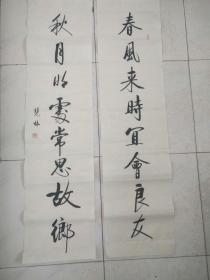 春風来時宜會良友
秋月明處常思故鄉